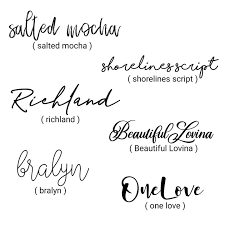 salted mocha
( salted mocha )
shorelinesscript
( shorelines script )
Richland
( richland )
Beautiful Lovina
( Beautiful Lovina )
bralyn
( bralyn )
OneLove
( one love )